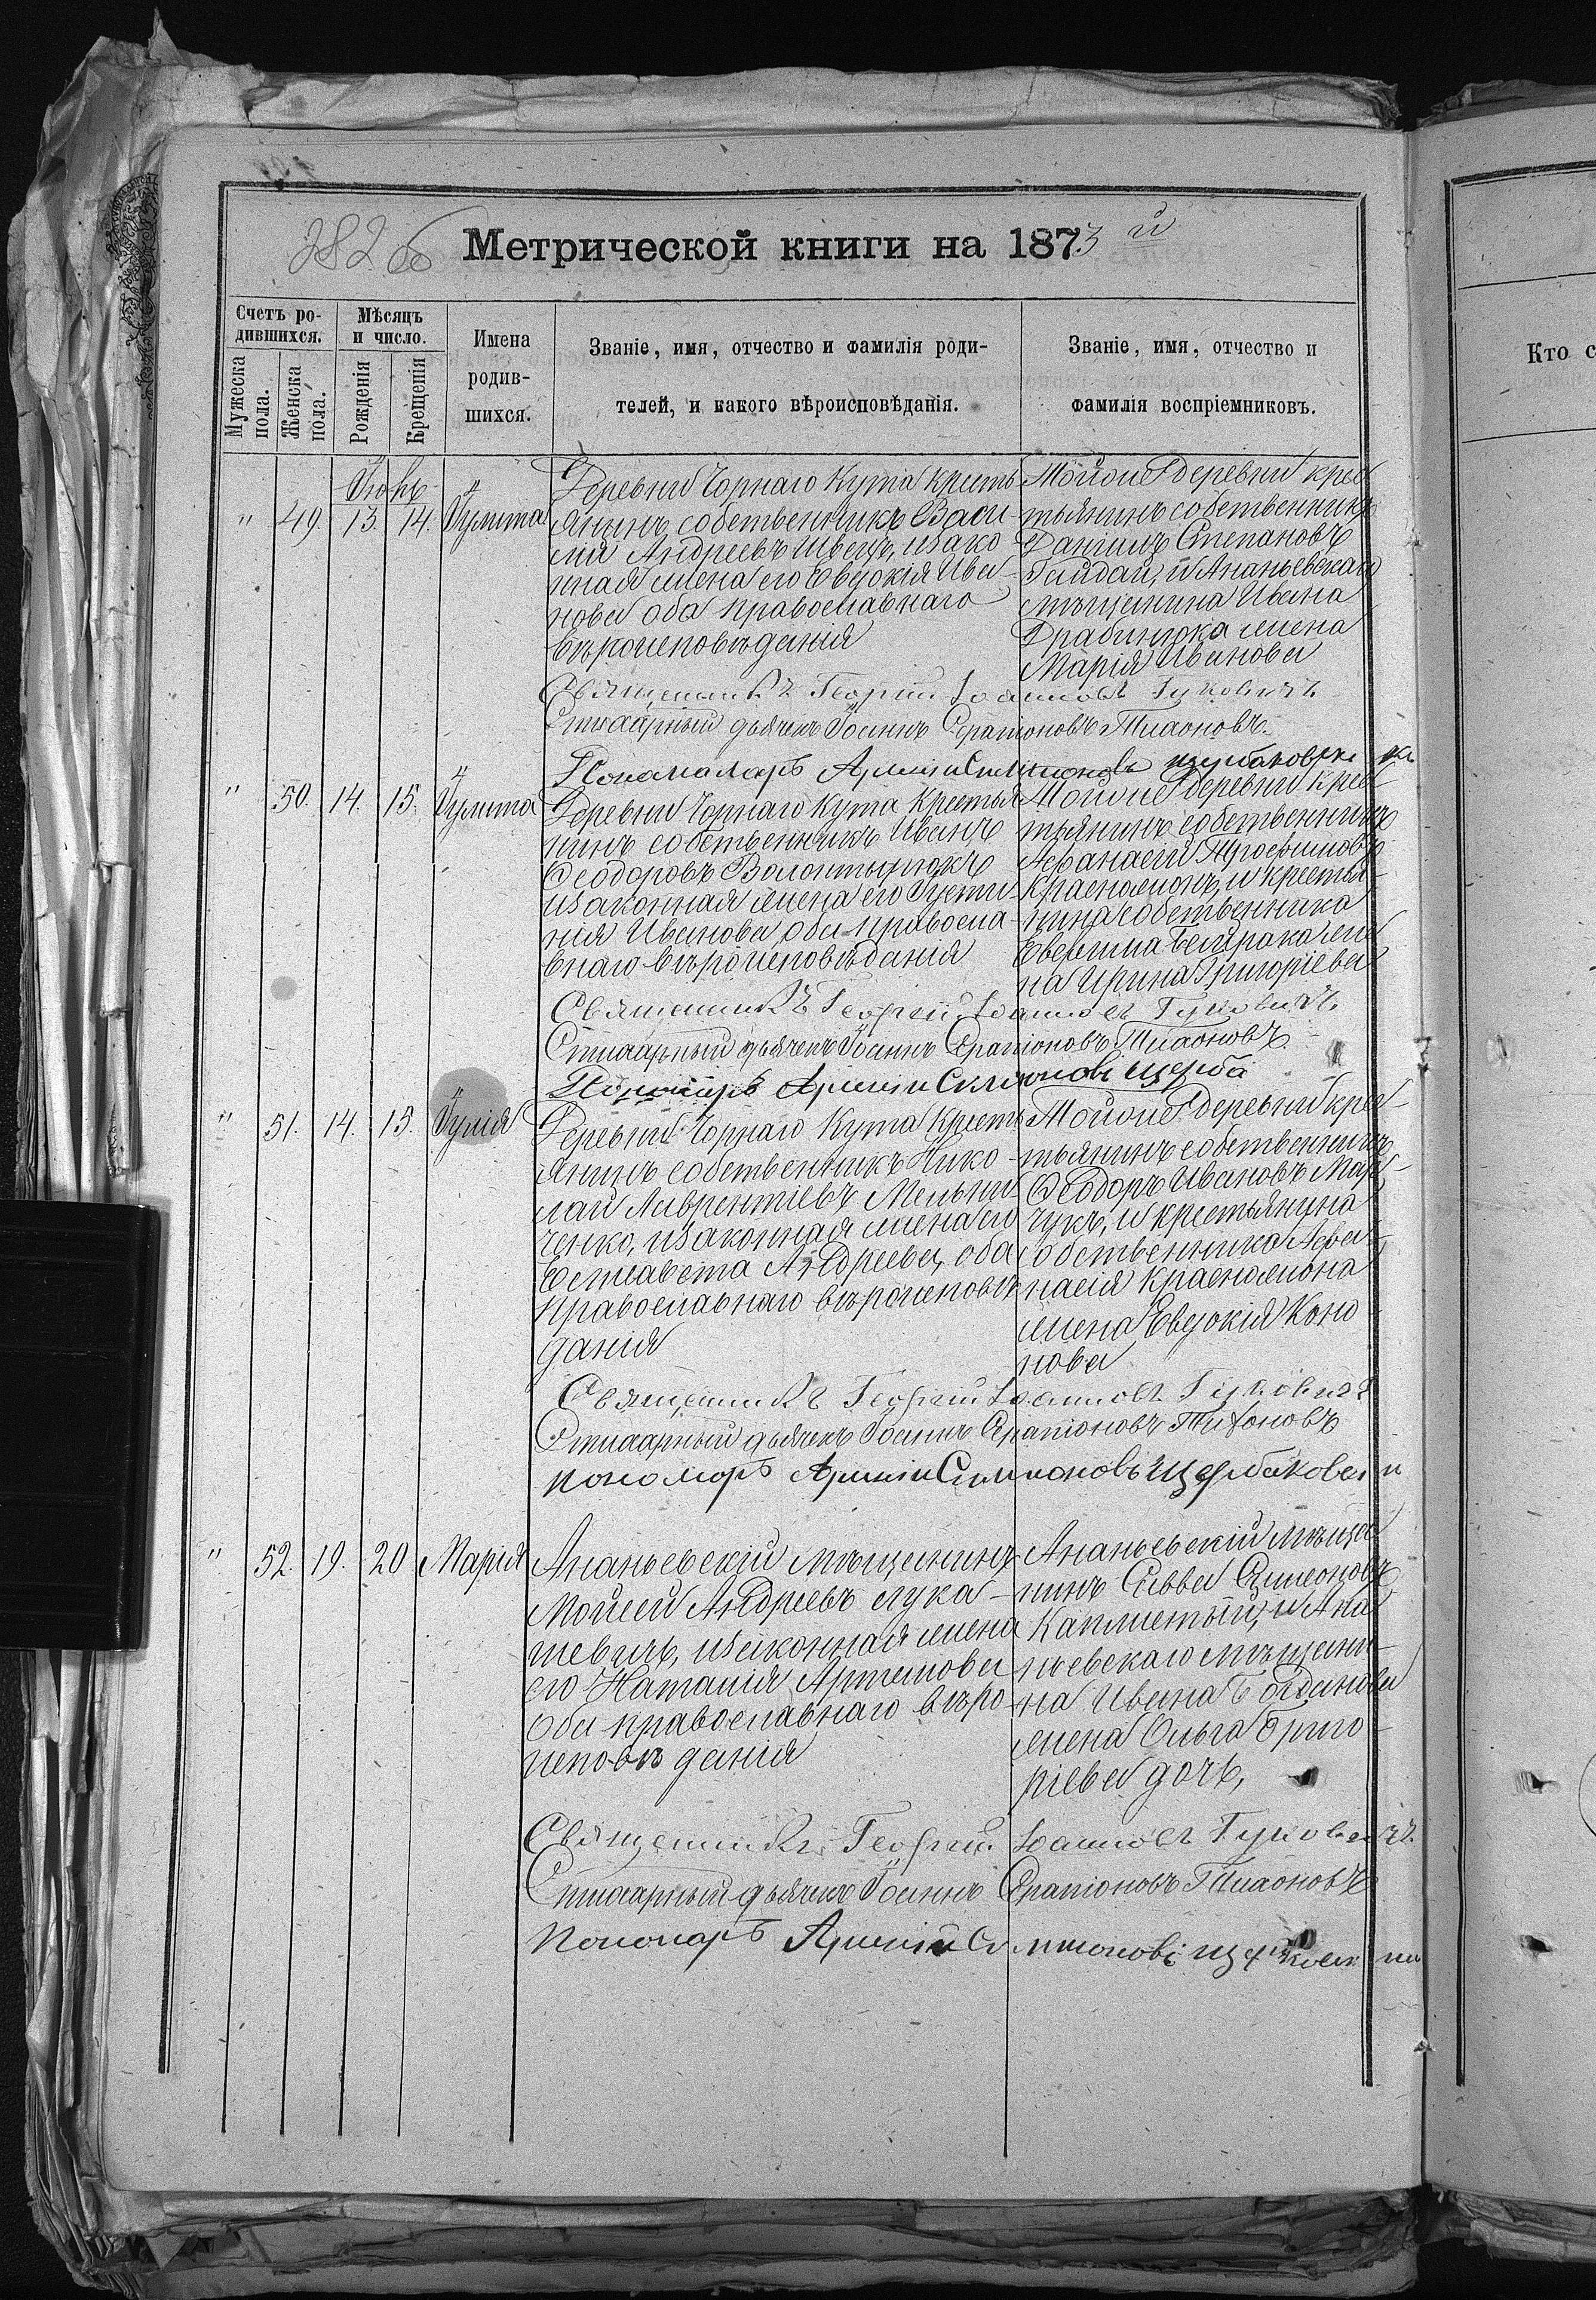 282 об
Метрической книги на 1873 й
Счетъ ро-
дившихся.
Мужеска
пола.
Женска
пола.
Мѣсяцъ
и число.
Рожденія
Крещенія
Имена
родив-
шихся.
Званіе, имя, отчество и фамилія роди-
телей, и какого вѣроисповѣданія.
Званіе, имя, отчество и
фамилія воспріемниковъ.
Кто с
" 49. 13. 14. Іулита
Деревни Чорнаго Кута кресть
янинъ собственникъ Васи-
лій Андреевъ Швецъ, изако
нная жена его Евдокія Ива-
нова оба православнаго
вѣроисповѣданія
Тойже деревни крес
тьянинъ собственникъ
Даніилъ Степановъ
Гайдай, и Ананьевскаго
мѣщанина Ивана
жена
Марія Иванова
Священникъ Георгій Іоанновъ
дьячекъ Іоаннъ Серапіоновъ Тихоновъ.
" 50. 14. 15. Іулита
Деревни Чорнаго Кута Крестья
нинъ собственникъ Иванъ
Ѳеодоровъ
изаконная жена его Іусти-
нія Иванова, оба правосла-
внаго вѣроисповѣданія
Тойже деревни крес-
тьянинъ собственникъ
Афанасій Трофимовъ
и крестья-
нина собственника
же
на Ирина Григоріева
Священникъ Георгій Іоанновъ
дьячекъ Іоаннъ Серапіоновъ Тихоновъ.
" 51. 14. 15. Іулія
Деревни Чорнаго Кута Кресть
янинъ собственникъ Нико-
лай Лаврентіевъ Мельни
ченко, изаконная жена его
Елисавета Андреева, оба
православнаго вѣроисповѣ
данія
Тойже деревни крес-
тьянинъ собственникъ
Ѳеодоръ Ивановъ Мар-
чукъ, и крестьянина
собственника Афа-
насія
жена Евдокія Коно
нова
Священникъ Георгій Іоанновъ
дьячекъ Іоаннъ Серапіоновъ Тихоновъ
" 52. 19. 20 Марія
Ананьевскій мѣщанинъ
Мойсей Андреевъ Лука-
шевичъ, изаконная жена
его Наталія Артемова
оба православнаго вѣро-
исповѣданія
Ананьевскій мѣща
нинъ Савва Симеоновъ
и Ана
ньевскаго мѣщани-
на Ивана
жена Ольга Григо-
ріева дочь,
Священникъ Георгій Іоанновъ
дьячекъ Іоаннъ Серапіоновъ Тихоновъ
Пономарь